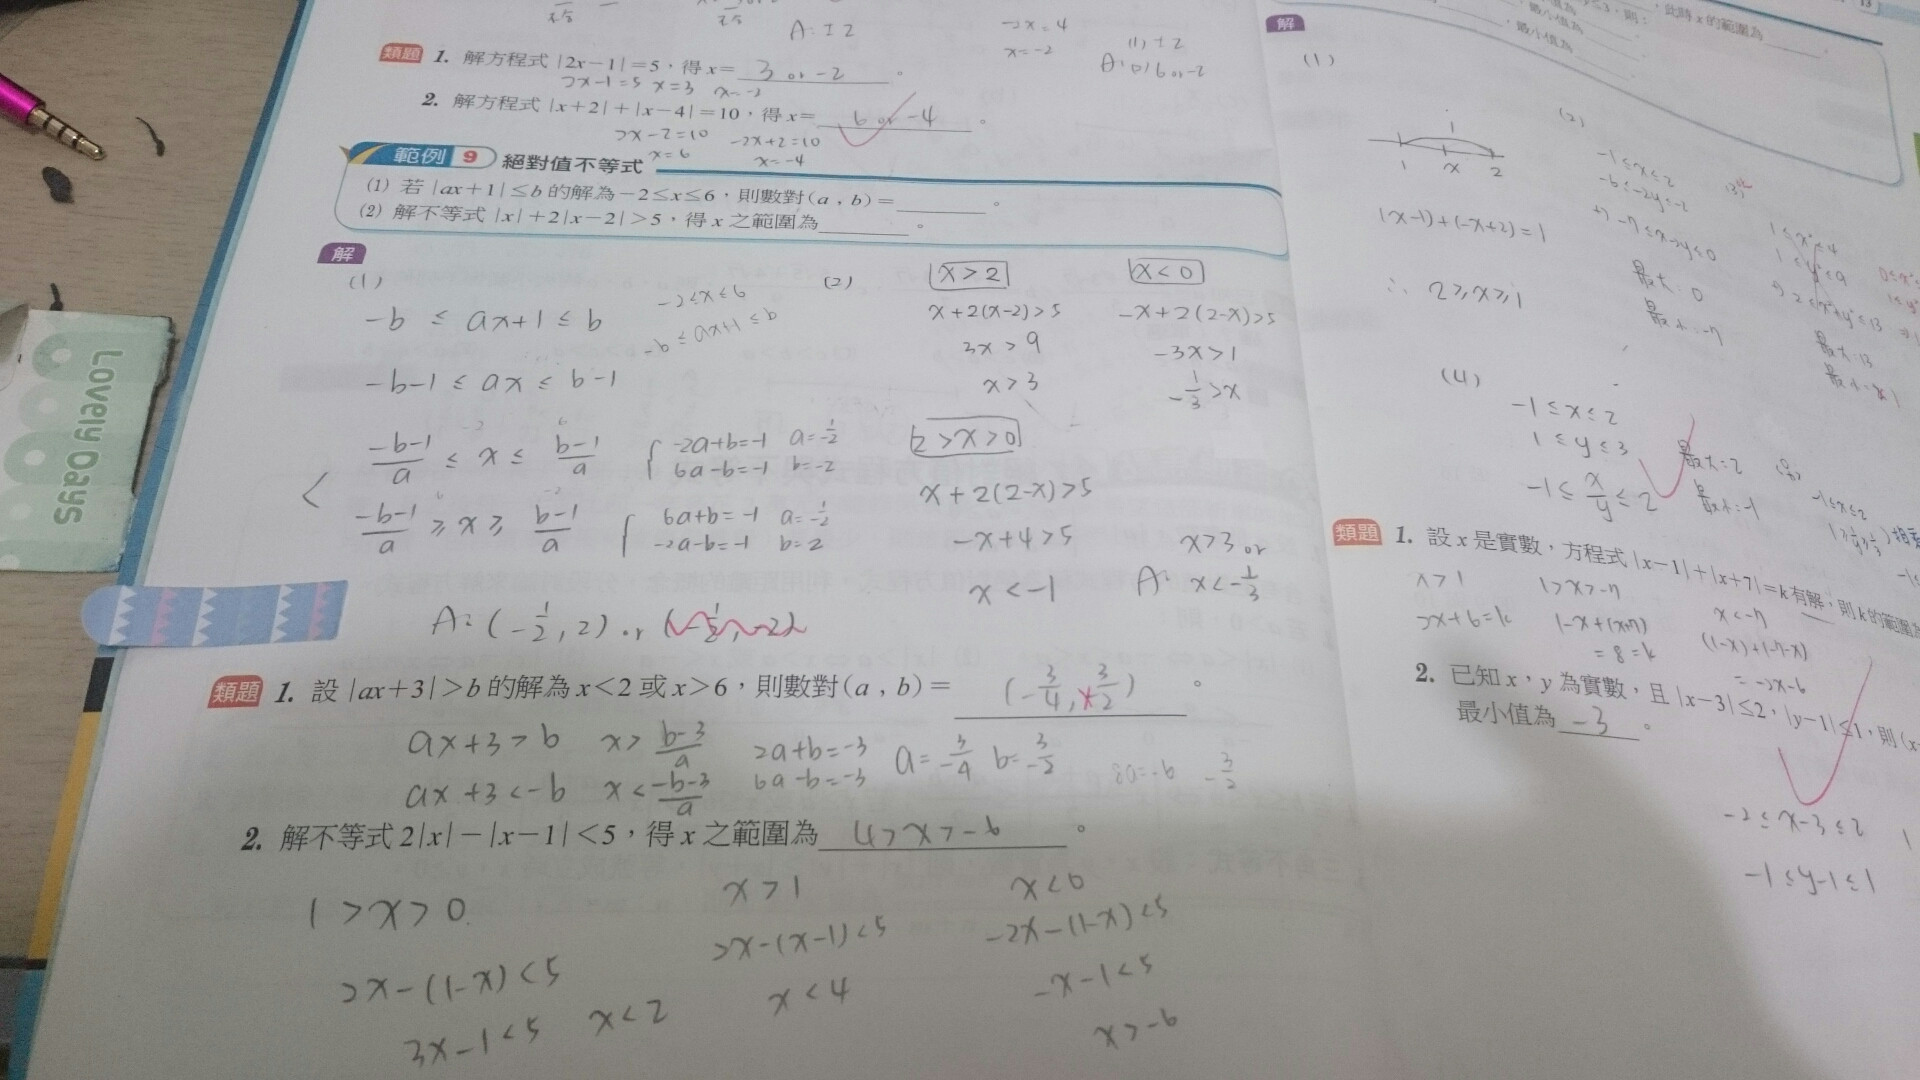 A: ±2
→x=4
x=-2
(1) ±2
類題 1. 解方程式 |2x-1|=5,得 x= 3 or -2 。
2x-1=5 x=3 x=-2
2. 解方程式 |x+2|+|x-4|=10,得 x= 6 or -4 。
2x-2=10 -2x+2=10
x=6 x=-4
範例 9 絕對值不等式
(1) 若 |ax+1|≤b 的解為 -2≤x≤6,則數對(a,b)=________。
(2) 解不等式 |x|+2|x-2|>5,得 x 之範圍為________。
解
(1)
-b ≤ ax+1 ≤ b
-2≤x≤6
-b ≤ ax+1 ≤ b
-b-1 ≤ ax ≤ b-1
(-b-1)/a ≤ x ≤ (b-1)/a { -2a+b=-1 a=-1/2
6a-b=-1 b=-2
(-b-1)/a ≥ x ≥ (b-1)/a { 6a+b=-1 a=-1/2
-2a-b=-1 b=2
A: (-1/2, 2) or (-1/2, -2)
(2)
x>2
x+2(x-2)>5
3x>9
x>3
x<0
-x+2(2-x)>5
-3x>1
-1/3>x
2>x>0
x+2(2-x)>5
-x+4>5
x<-1
A: x>3 or
x<-1/3
類題 1. 設 |ax+3|>b 的解為 x<2 或 x>6,則數對(a,b)= (-3/4, 3/2) 。
ax+3>b x>(b-3)/a 2a+b=-3 a=-3/4 b=-3/2
ax+3<-b x<(-b-3)/a 6a-b=-3 8a=-6 -3/2
2. 解不等式 2|x|-|x-1|<5,得 x 之範圍為 4>x>-6 。
1>x>0
2x-(1-x)<5
3x-1<5 x<2
x>1
2x-(x-1)<5
x<4
x<0
-2x-(1-x)<5
-x-1<5
x>-6
Lovely Days
13
,此時 x 的範圍為______。
,最小值為______。
,最小值為______。
解
(1)
1
1 x 2
(x-1)+(-x+2)=1
∴ 2≥x≥1
(2)
-1≤x≤2
-6≤-2y≤-2
+) -7≤x-2y≤0
最大: 0
最小: -7
(3)
1≤y²≤9
最大: 13
(4)
-1≤x≤2
1≤y≤3
-1≤x/y≤2
最大=2
最小=-1
-1≤x≤2
類題 1. 設 x 是實數,方程式 |x-1|+|x+7|=k 有解,則 k 的範圍為
x>1 1>x>-7 x<-7
2x+6=k 1-x+(x+7) (1-x)+(-7-x)
=8=k =-2x-6
2. 已知 x,y 為實數,且 |x-3|≤2,|y-1|≤1,則(x
最小值為 -3 。
-2≤x-3≤2
-1≤y-1≤1